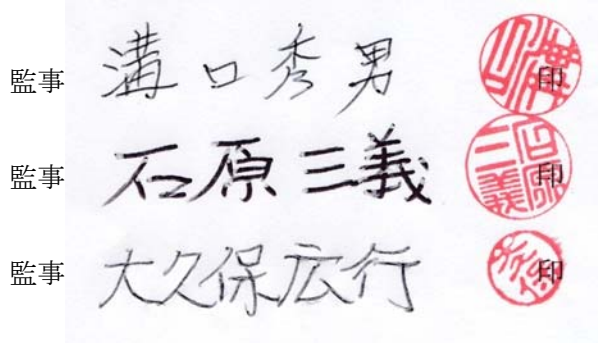 監事 溝口秀男 印
監事 石原三義 印
監事 大久保広行 印